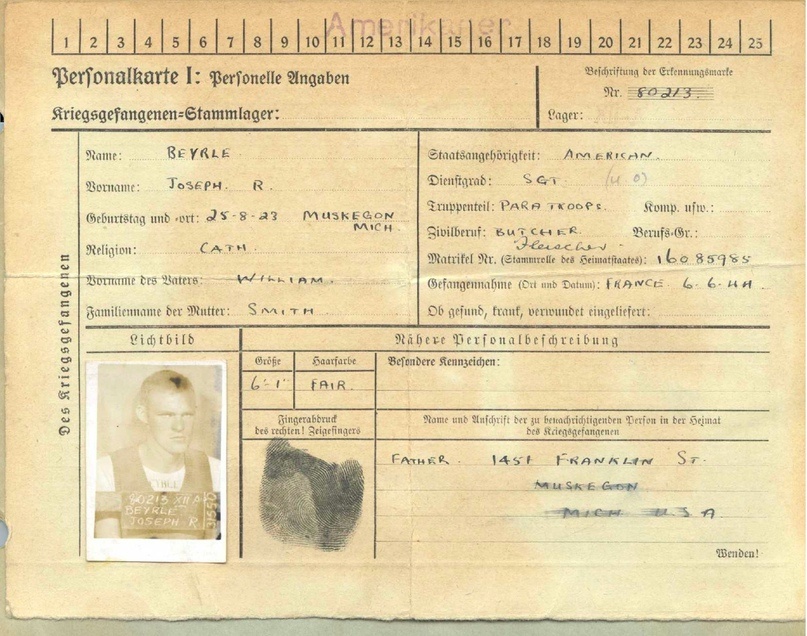 Amerikaner
1 2 3 4 5 6 7 8 9 10 11 12 13 14 15 16 17 18 19 20 21 22 23 24 25
Personalkarte I: Personelle Angaben
Beschriftung der Erkennungsmarke
Nr. 80213.
Kriegsgefangenen-Stammlager:
Lager:
Des Kriegsgefangenen
Name: BEYRLE
Vorname: JOSEPH. R.
Geburtstag und -ort: 25-8-23 MUSKEGON
MICH.
Religion: CATH.
Vorname des Vaters: WILLIAM.
Familienname der Mutter: SMITH
Staatsangehörigkeit: AMERICAN.
Dienstgrad: SGT. (U.O)
Truppenteil: PARATROOPS. Komp. usw.:
Zivilberuf: BUTCHER. Berufs-Gr.:
Fleischer
Matrikel Nr. (Stammrolle des Heimatstaates): 16085985
Gefangennahme (Ort und Datum): FRANCE 6.6.44
Ob gesund, krank, verwundet eingeliefert:
Lichtbild
Nähere Personalbeschreibung
Größe
Haarfarbe
Besondere Kennzeichen:
6'-1"
FAIR.
Fingerabdruck
des rechten! Zeigefingers
Name und Anschrift der zu benachrichtigenden Person in der Heimat
des Kriegsgefangenen
FATHER. 1451 FRANKLIN ST.
MUSKEGON
MICH U.S.A
80213 XII A
BEYRLE
JOSEPH R.
Wenden!